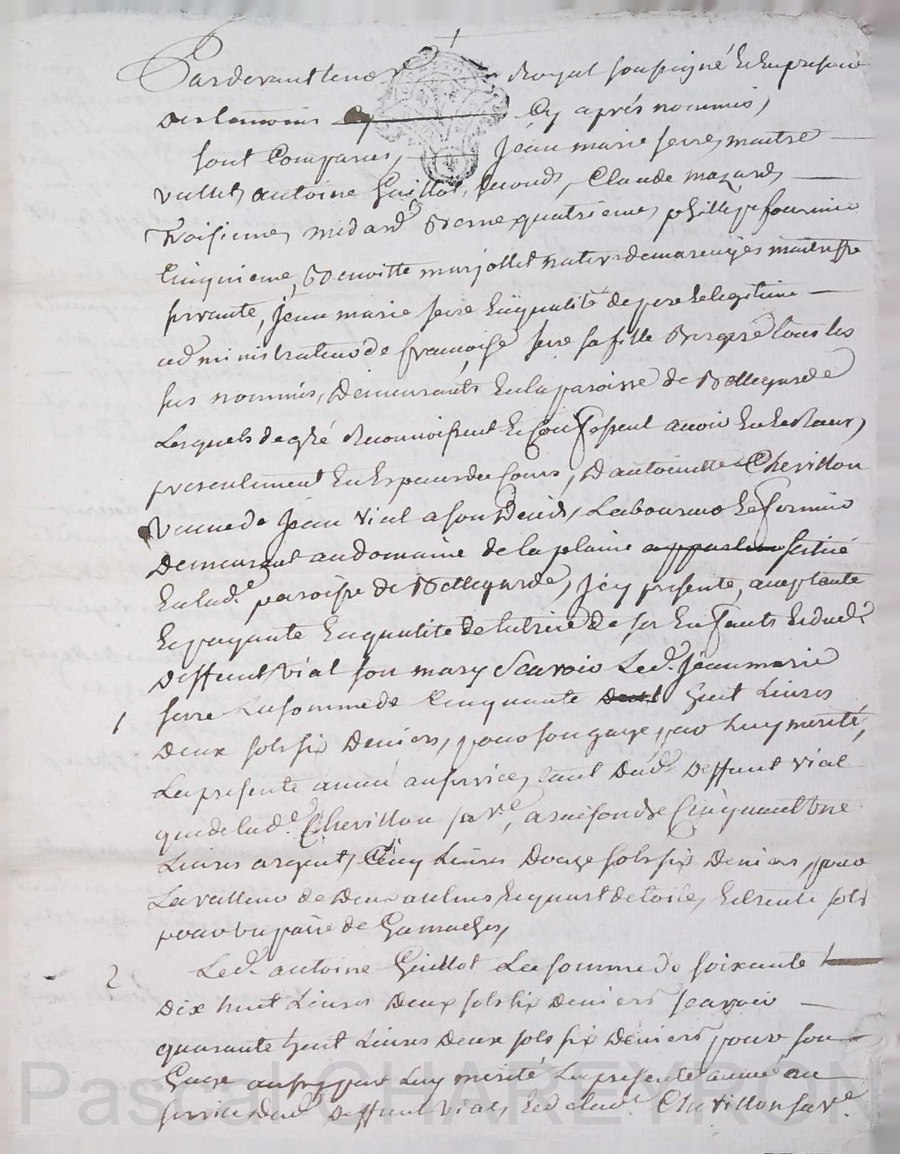 Pardevant le no.re Royal soussigné Et En presence
des temoins Cy Cy aprés nommés,
sont Comparus, Jean marie serre, maitre
vallet, antoine Guillot, second, Claude mazard
troisieme, medard quatrieme, philippe fournier
Cinquieme, Benoitte marjollet native de maringes maitresse
servante, Jean marie serre En qualité de pere Et legitime
administrateur de francoise serre sa fille Bergere tous les
sus nommés, Demeurants En la paroisse de Bellegarde
Lesquels de gré Reconnoissent Et Confessent avoir Eu Et Receus
presentement En Especes du Cours, D'antoinette Chevillon
veuve de Jean vial a son Deceds, Laboureur Et fermier
Demeurant au domaine de la plaine situé
En lad.e paroisse de Bellegarde, Icy presente, acceptante
Et payante En qualité de tutrice de ses Enfants Et dud.t
Deffunt vial son mary Scavoir Led.t Jean marie
1 serre La somme de Cinquante huit Livres
Deux sols six Deniers, pour son gage par Luy merité,
La presente année au service, tant Dud.t Deffunt vial
que de lad.e Chevillon sa v.e, a Cinquante une
Livres argent, Cinq Livres Douze sols six Deniers, pour
La valleur de Deux aulnes Et quart de toile, Et trente sols
pour un paire de Gamaches,
2 Led.t antoine Guillot La somme de soixante
Dix huit Livres Deux sols six Deniers scavoir
quarante huit Livres Deux sols six Deniers pour son
Gage par Luy merité La presente année au
service Dud.t Deffunt vial, Et de lad.e Chevillon sa v.e
Pascal CHAREYRON